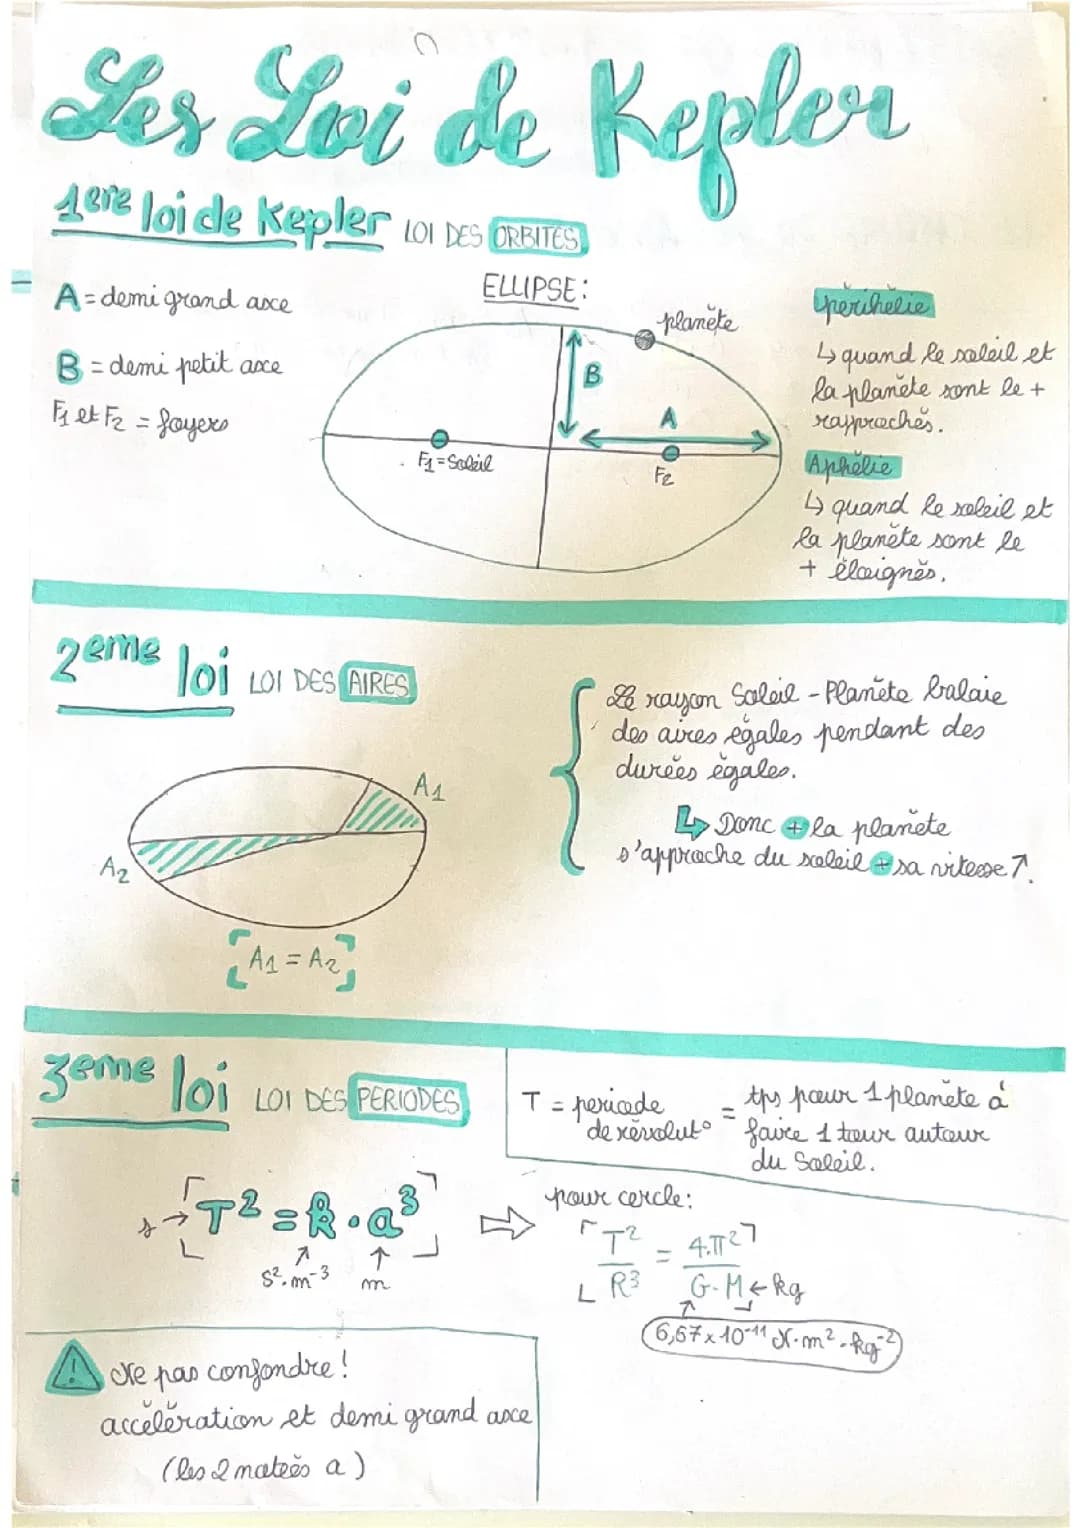 Les Loi de Kepler
1ere loi de Kepler LOI DES ORBITES
A = demi grand axe
B = demi petit axe
F1 et F2 = foyers
ELLIPSE:
planète
B
A
F1 = Soleil
F2
périhélie
↳ quand le soleil et
la planète sont le +
rapprochés.
Aphélie
↳ quand le soleil et
la planète sont le
+ éloignés.
2eme loi LOI DES AIRES
A1
A2
[A1 = A2]
Le rayon Soleil - Planète balaie
des aires égales pendant des
durées égales.
↳ Donc + la planète
s'approche du soleil + sa vitesse ↗.
3eme loi LOI DES PERIODES
T = periode
de révolut° = tps pour 1 planète à
faire 1 tour autour
du Soleil.
s → [T² = k . a³]
s².m⁻³
m
⇒ pour cercle:
[T²/R³ = 4.π²/G.M] ← kg
6,67 x 10⁻¹¹ N.m².kg⁻²
⚠ Ne pas confondre !
accélération et demi grand axe
(les 2 notés a)